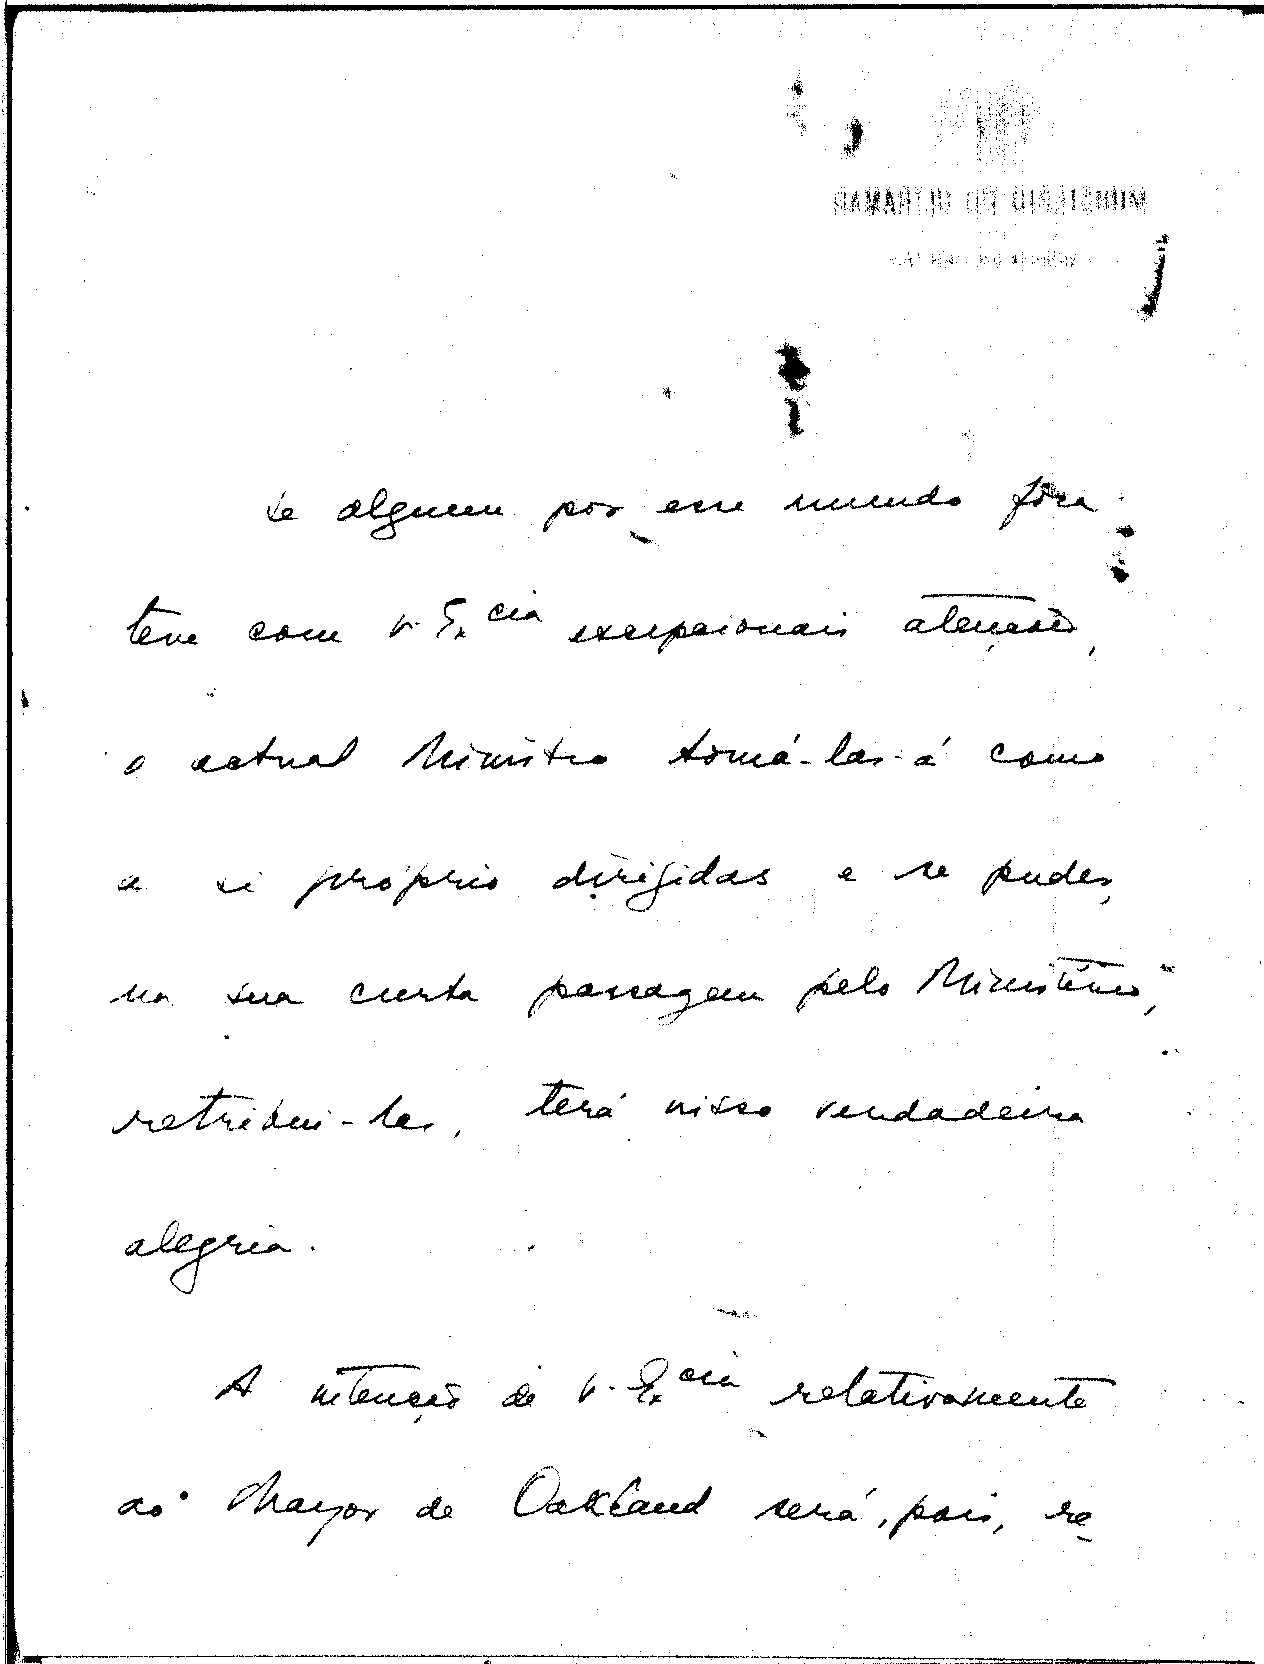 MINISTÉRIO DO ULTRAMAR
se alguem por esse mundo fora
teve com V. Ex.cia excepcionais atenções,
o actual Ministro tomá-las-á como
a si próprio dirigidas e se puder,
na sua curta passagem pelo Ministério,
retribui-las, terá nisso verdadeira
alegria.
A intenção de V. Ex.cia relativamente
ao Mayor de Oakland será, pois, re-